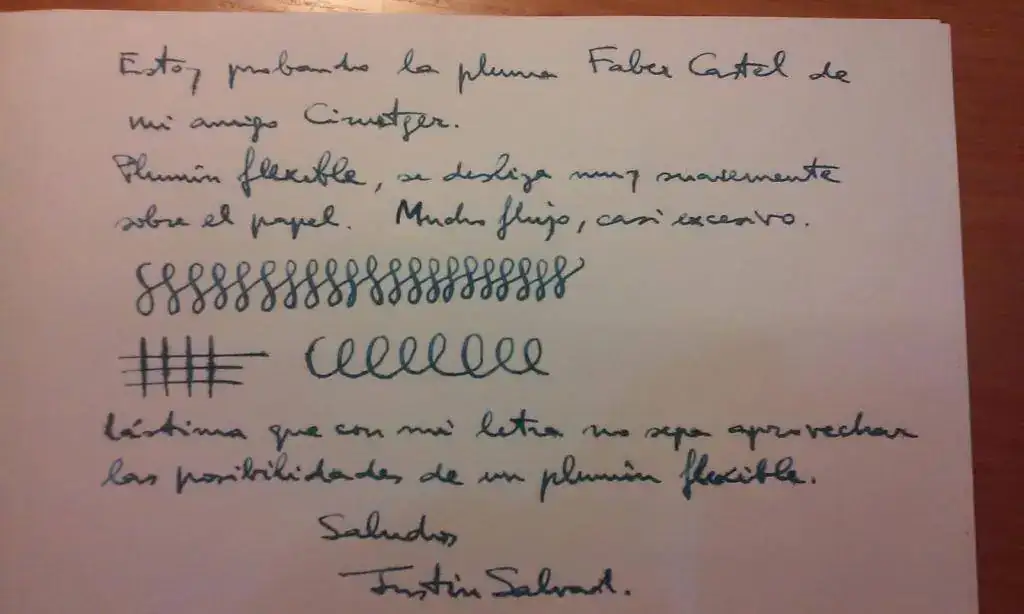 Estoy probando la pluma Faber Castel de
mi amigo Cimetger.
Plumín flexible, se desliza muy suavemente
sobre el papel. Mucho flujo, casi excesivo.
Lástima que con mi letra no sepa aprovechar
las posibilidades de un plumín flexible.
Saludos